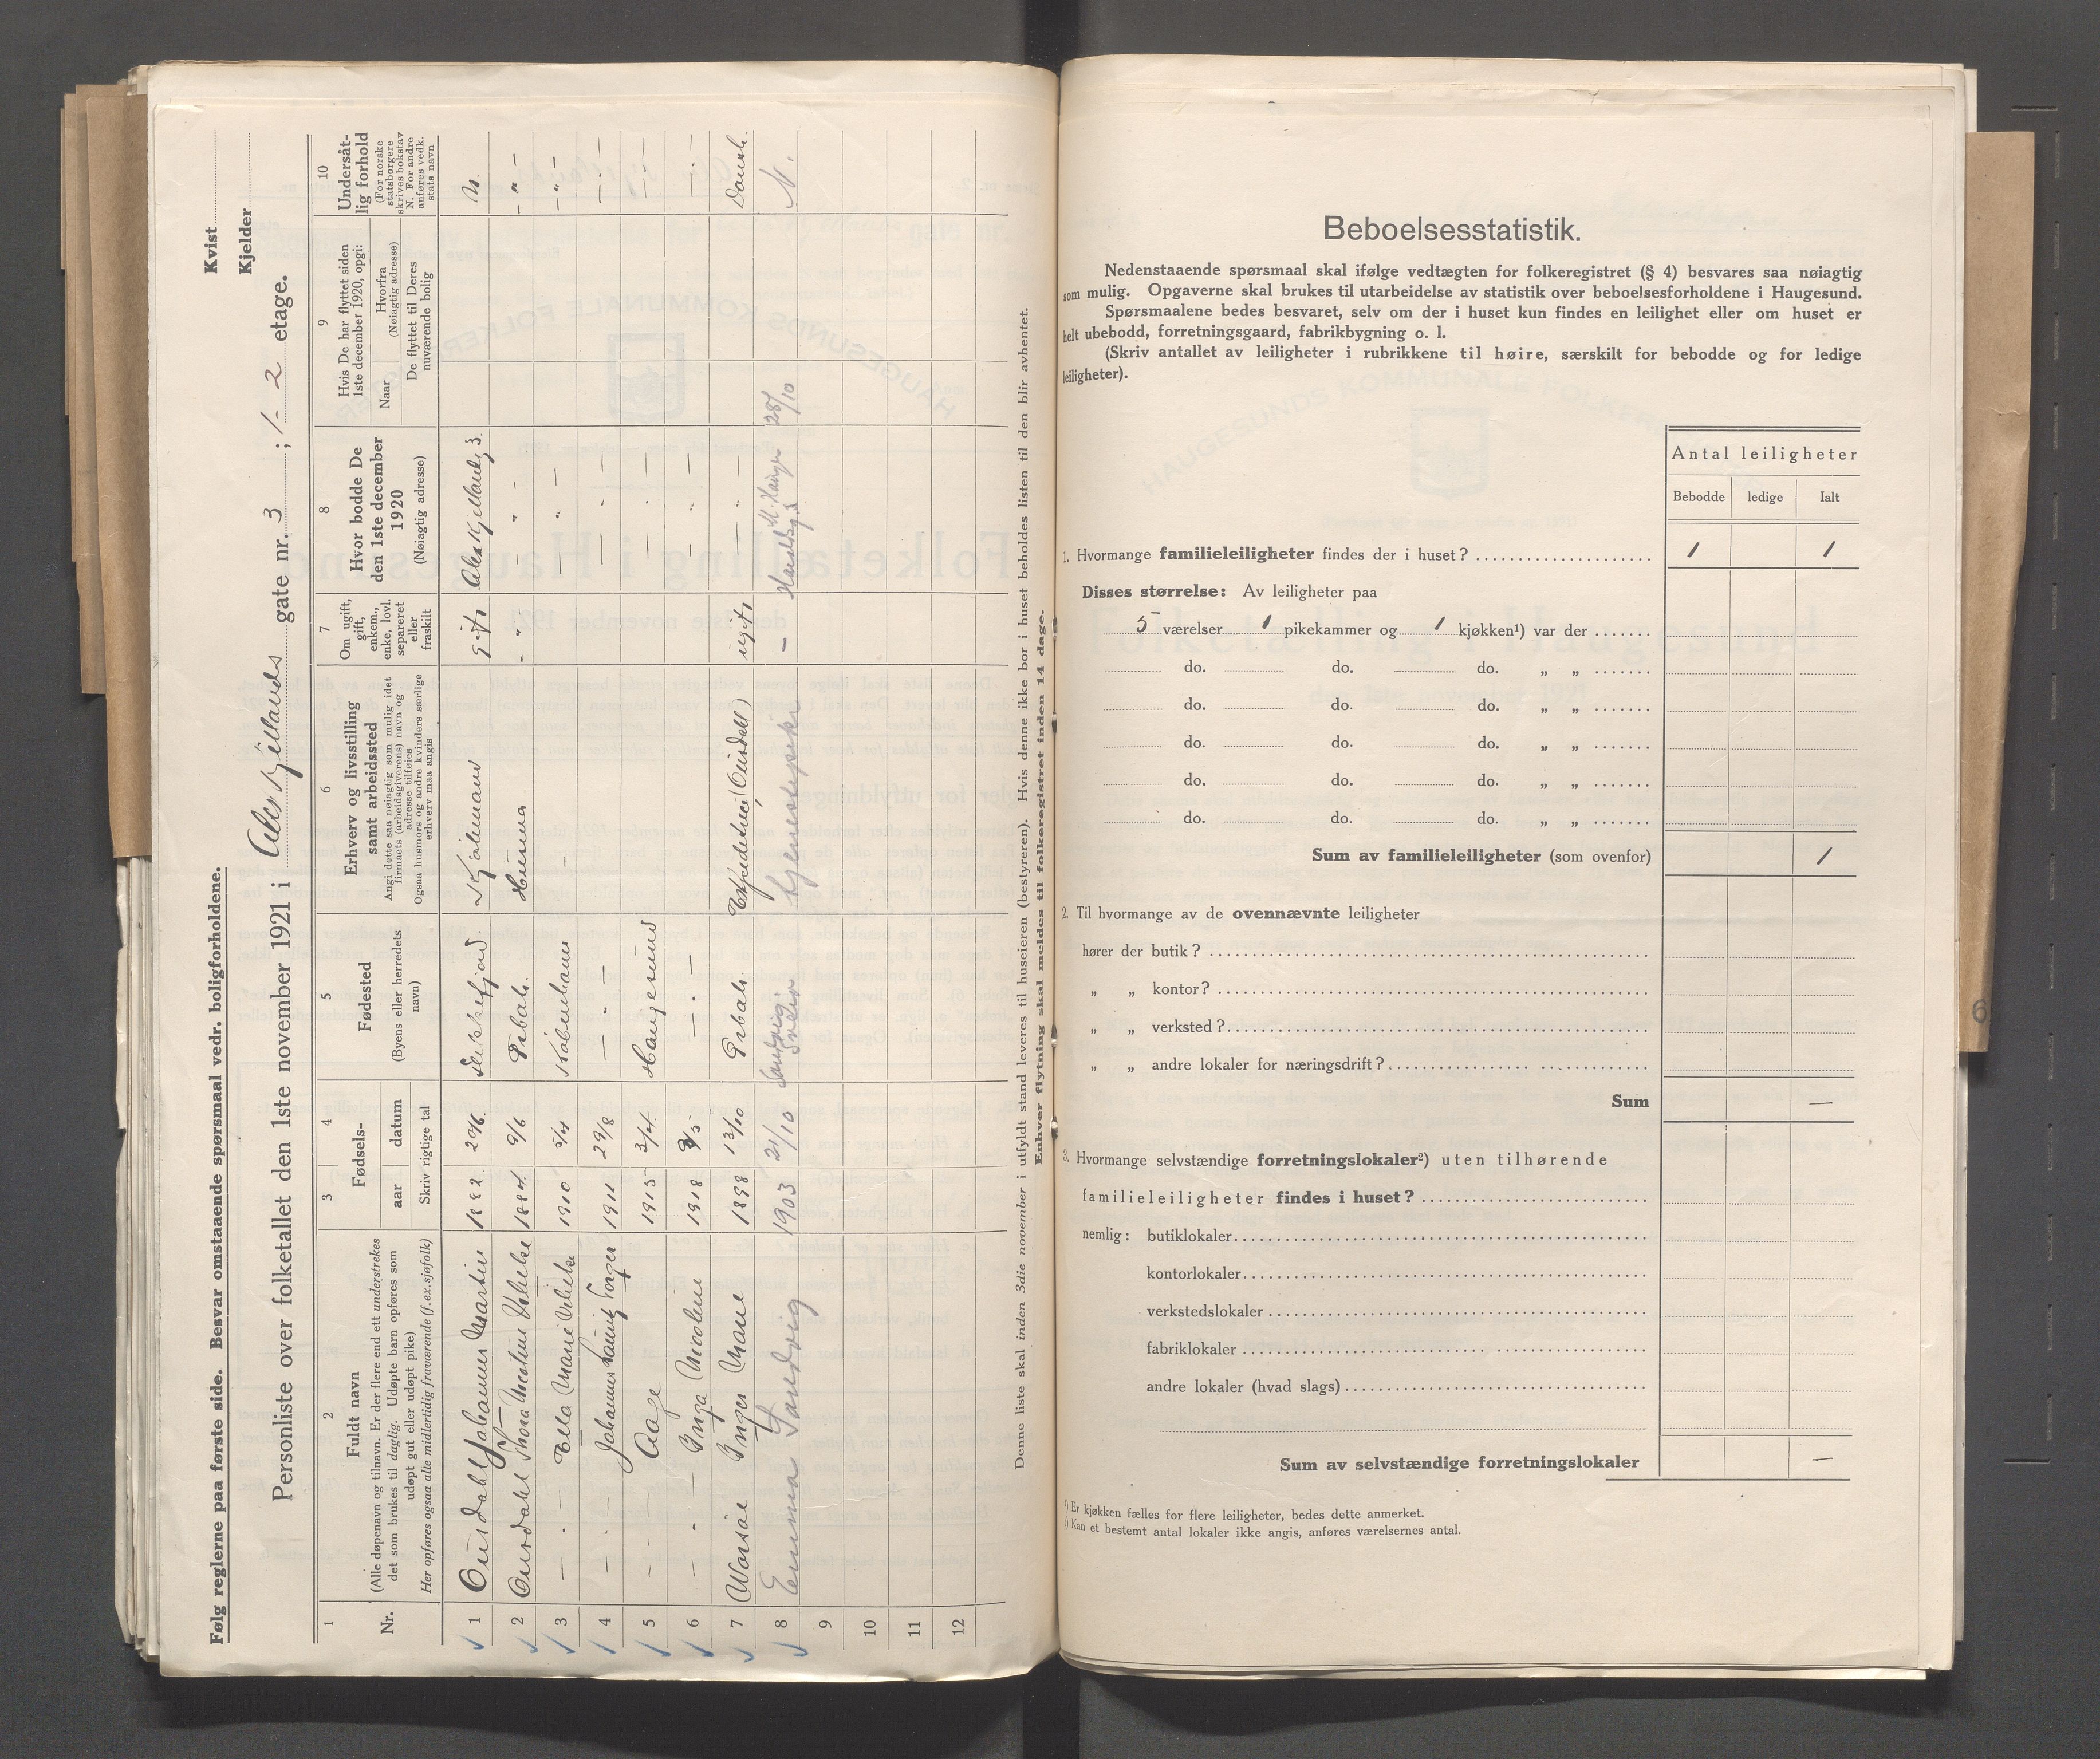 Følg reglerne paa første side. Besvar omstaaende spørsmaal vedr. boligforholdene.
Kvist
Kjelder
Personliste over folketallet den 1ste november 1921 i Alex Kjellands gate nr. 3 ; 1-2 etage.
1
2
3
4
5
6
7
8
9
10
Nr.
Fuldt navn
(Alle døpenavn og tilnavn. Er der flere end ett understrekes
det som brukes til daglig. Udøpte barn opføres som
udøpt gut eller udøpt pike)
Her opføres ogsaa alle midlertidig fraværende (f. ex. sjøfolk)
Fødsels-
aar
datum
Skriv rigtige tal
Fødested
(Byens eller herredets
navn)
Erhverv og livsstilling
samt arbeidssted
Angi dette saa nøiagtig som mulig idet
firmaets (arbeidsgiverens) navn og
adresse tilføies
Ogsaa husmors og andre kvinders særlige
erhverv maa angis
Om ugift,
gift,
enkem.,
enke, lovl.
separeret
eller
fraskilt
Hvor bodde De
den 1ste december
1920
(Nøiagtig adresse)
Hvis De har flyttet siden
1ste december 1920, opgi:
Naar
Hvorfra
(Nøiagtig adresse)
De flyttet til Deres
nuværende bolig
Undersåt-
lig forhold
(For norske
statsborgere
skrives bokstav
N. For andre
anføres vedk.
stats navn
1 Johannes Martin 1882 29/6 Flekkefjord Kjøbmand gift Alex Kjellandsg 3. N.
2 Thora Nicoline 1884 9/6 Husmor - " - - " - - " -
3 — . — Ella Marie 1910 5/4 Københavns — — " — - " -
4 — . — Johannes 1911 29/8 — . — — . — — . —
5 — - — Aage 1915 3/4 Haugesund — . — — . —
6 — . — Inga Nicoline 1918 — . — — " — — . —
7 Worsøe Inger Marie 1898 13/10 ugift — " — Dansk.
8 Emma Sandvig 1903 21/10 Sandvig Sveio tjenestepike — Haraldsg. 28/10 N.
9
10
11
12
Denne liste skal inden 3die november i utfyldt stand leveres til huseieren (bestyreren). Hvis denne ikke bor i huset beholdes listen til den blir avhentet.
Enhver flytning skal meldes til folkeregistret inden 14 dage.
Beboelsesstatistik.
Nedenstaaende spørsmaal skal ifølge vedtægten for folkeregistret (§ 4) besvares saa nøiagtig
som mulig. Opgaverne skal brukes til utarbeidelse av statistik over beboelsesforholdene i Haugesund.
Spørsmaalene bedes besvaret, selv om der i huset kun findes en leilighet eller om huset er
helt ubebodd, forretningsgaard, fabrikbygning o. l.
(Skriv antallet av leiligheter i rubrikkene til høire, særskilt for bebodde og for ledige
leiligheter).
Antal leiligheter
Bebodde ledige Ialt
1. Hvormange familieleiligheter findes der i huset? 1 1
Disses størrelse: Av leiligheter paa
5 værelser 1 pikekammer og 1 kjøkken¹) var der
do. do. do. „ „
do. do. do. „ „
do. do. do. „ „
do. do. do. „ „
do. do. do. „ „
Sum av familieleiligheter (som ovenfor) 1
2. Til hvormange av de ovennævnte leiligheter
hører der butik?
„ „ kontor?
„ „ verksted?
„ „ andre lokaler for næringsdrift?
Sum —
3. Hvormange selvstændige forretningslokaler²) uten tilhørende
familieleiligheter findes i huset?
nemlig: butiklokaler
kontorlokaler
verkstedslokaler
fabriklokaler
andre lokaler (hvad slags)
Sum av selvstændige forretningslokaler —
¹) Er kjøkken fælles for flere leiligheter, bedes dette anmerket.
²) Kan et bestemt antal lokaler ikke angis, anføres værelsernes antal.
6